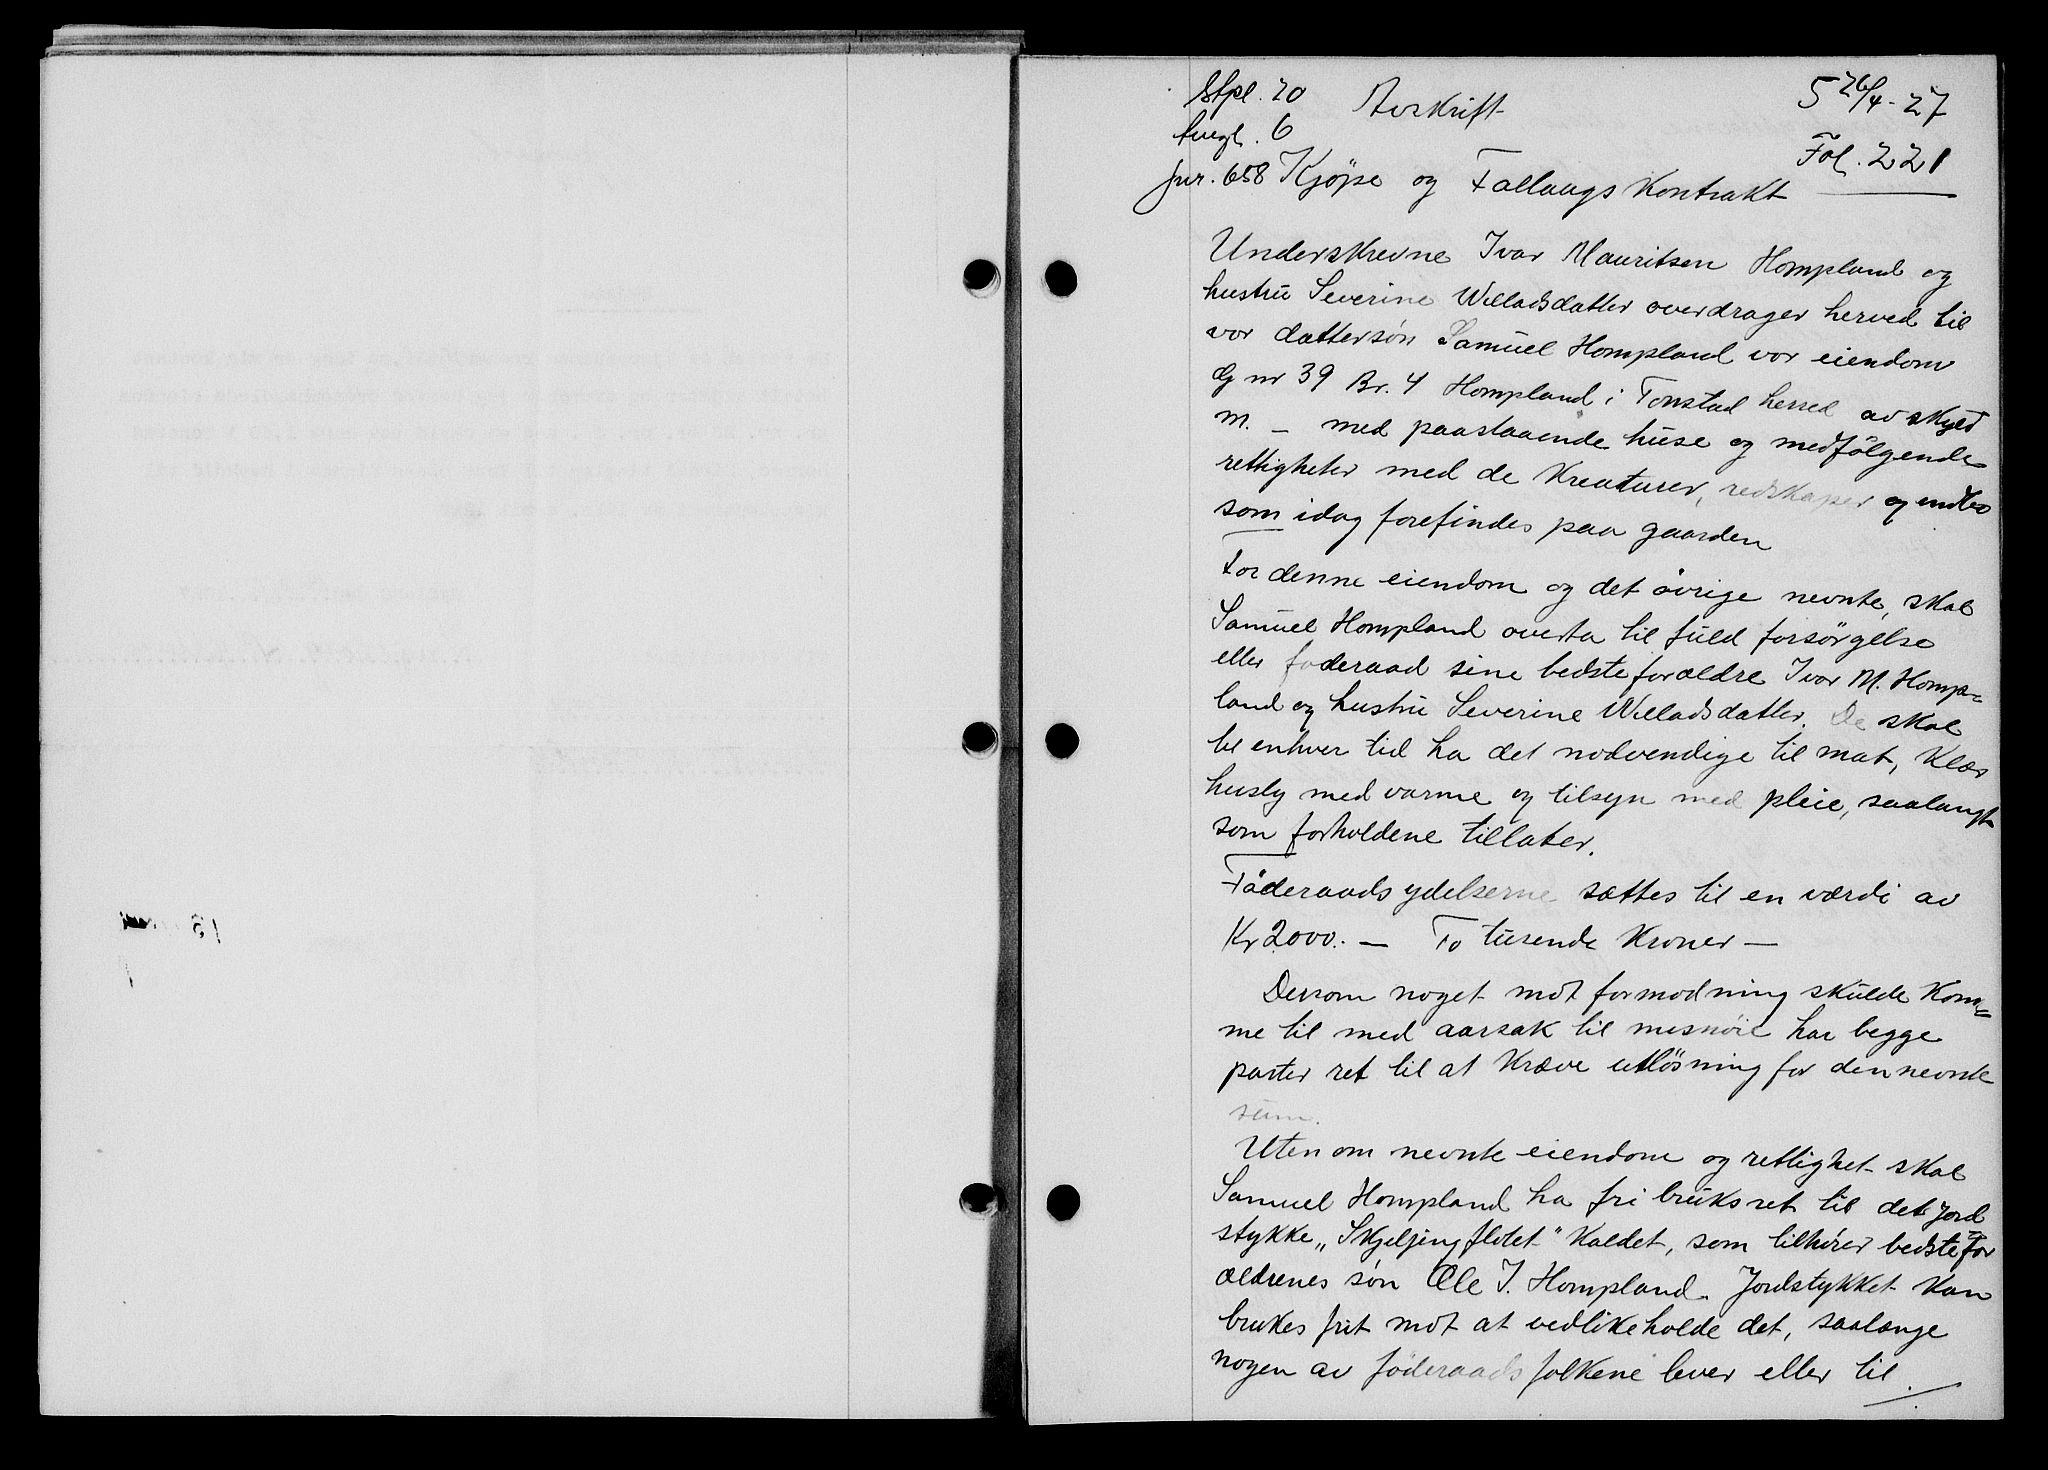 Stpl. 20 Avskrift 5 26/4-27
tingl. 6
Fol. 221
jnr. 658 Kjöpe og Follaugs Kontrakt
Underskrevne Ivar Mauritsen Hompland og
hustru Severine Willadsdatter overdrager herved til
vor dattersøn Samuel Hompland vor eiendom
G nr 39 Br. 4 Hompland i Tonstad herred av skyld
m. – med paastaaende huse og medfölgende
rettigheter med de Kreaturer, redskaper og andet
som idag forefindes paa gaarden
For denne eiendom og det övrige nevnte, skal
Samuel Hompland overta til fuld forsörgelse
eller foderaad sine bedsteforældre Ivar M. Homp=
land og hustru Severine Willadsdatter. De skal
til enhver tid ha det nodvendige til mat, Klær
husly med varme og tilsyn med pleie, saalangt
som forholdene tillater.
Föderaadsydelserne sættes til en værdi av
Kr 2000. – To tusende Kroner –
Dersom noget mot formodning skulde Kom=
me til med aarsak til misnöie har begge
parter ret til at Kræve utlösning for den nevnte
sum.
Uten om nevnte eiendom og rettighet skal
Samuel Hompland ha fri bruksret til det Jord
stykke „Skjeljingflotet" Kaldet, som tilhörer bedstefor
ældrenes søn Ole I. Hompland. Jordstykket Kan
brukes frit mot at vedlikeholde det, saalænge
nogen av föderaadsfolkene lever eller til